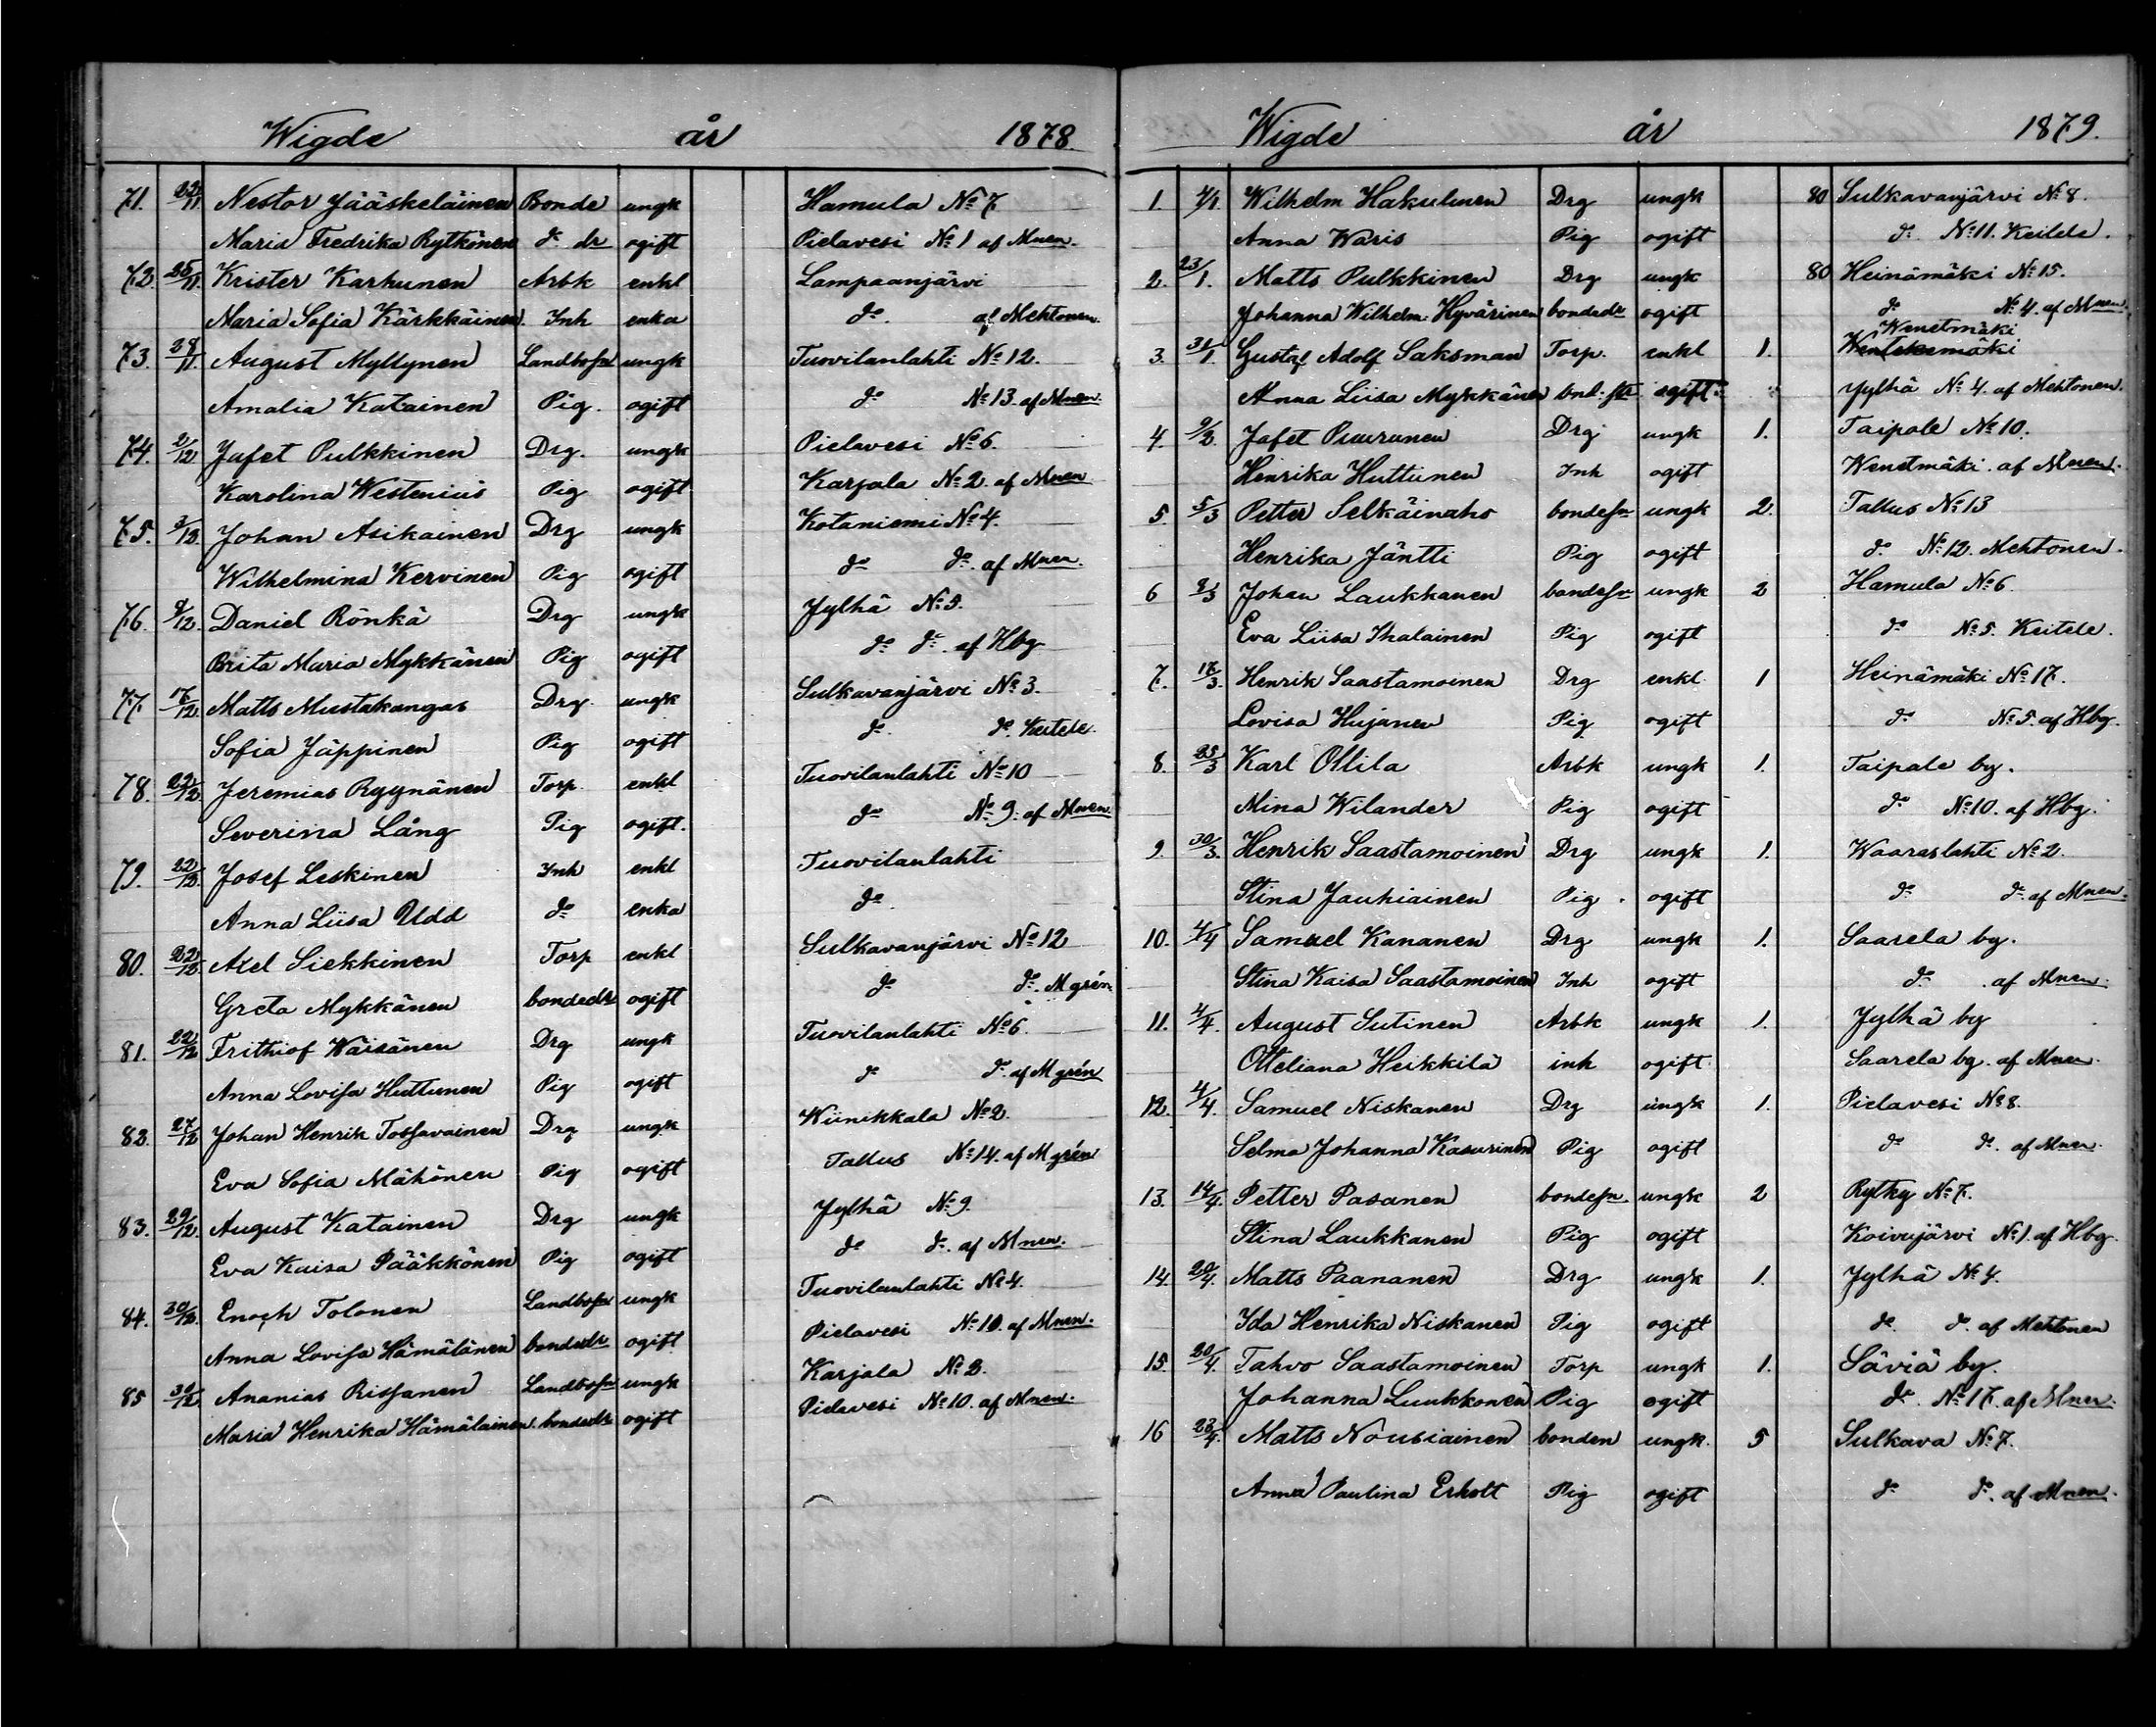 Wigde år 1878
71. 22/11 Nestor Jääskeläinen Bonde ungk Hamula No 7
Maria Fredrika Rytkönen do dr ogift Pielavesi No 1 af Mnen.
72. 25/11. Krister Karhunen Arbk enkl Lampaanjärvi
Maria Sofia Kärkkäinen. Inh enka do. af Mehtonen.
73. 28/11. August Myllynen Landbosn ungk Tuovilanlahti No 12.
Amalia Katainen Pig. ogift do No 13. af Mnen.
74. 2/12 Jafet Pulkkinen Drg. ungk Pielavesi No 6.
Karolina Westenius Pig ogift Karjala No 2. af Mnen
75. 3/12. Johan Asikainen Drg ungk Kotaniemi No 4.
Wilhelmina Kervinen Pig ogift do do. af Mnen.
76. 8/12. Daniel Rönkä Drg ungk Jylhä No 5.
Brita Maria Mykkänen Pig ogift do do. af Hbg
77. 17/12. Matts Mustakangas Drg. ungk Sulkavanjärvi No 3.
Sofia Jäppinen Pig ogift do. do. Keitele.
78. 22/12. Jeremias Ryynänen Torp. enkl Tuovilanlahti No 10
Severina Lång Pig ogift. do No 9. af Mnen.
79. 22/12. Josef Leskinen Inh enkl Tuovilanlahti
Anna Liisa Udd do enka do.
80. 22/12. Axel Siekkinen Torp enkl Sulkavanjärvi No 12
Greta Mykkänen bondedr ogift do do. Mgrén
81. 22/12 Frithiof Waisänen Drg ungk Tuovilanlahti No 6.
Anna Lovisa Huttunen Pig ogift do do. af Mgrén
82. 27/12 Johan Henrik Tossavainen Drg ungk Wiinikkala No 2.
Eva Sofia Mähönen Pig ogift Tallus No 14. af Mgrén
83. 29/12. August Katainen Drg ungk Jylhä No 9.
Eva Kaisa Pääkkönen Pig ogift do do. af Mnen.
84. 30/12. Enoch Tolonen Landbosn ungk Tuovilanlahti No 4.
Anna Lovisa Hämäläinen bondedr ogift Pielavesi No 10. af Mnen.
85 30/12 Ananias Rissanen Landbosn ungk Karjala No 2.
Maria Henrika Hämäläinen bondedr ogift Pielavesi No 10. af Mnen.
Wigde år 1879.
1. Wilhelm Hakulinen Drg ungk 80 Sulkavanjärvi No 8.
Anna Waris Pig ogift do. No 11. Keitele.
2. 23/1. Matts Pulkkinen Drg ungk 80 Heinämäki No 15.
Johanna Wilhelm: Hyvärinen bondedr ogift do No 4. af Mnen
Wenetmäki
3. 31/1. Gustaf Adolf Saksman Torp. enkl 1.
Anna Liisa Mykkänen ogift Jylhä No 4. af Mehtonen.
4. 9/2. Jafet Puurunen Drg ungk 1. Taipale No 10.
Henrika Huttunen Inh ogift Wenetmäki. af Mnen.
5. 5/3 Petter Selkäinaho bondesn ungk 2. Tallus No 13
Henrika Jäntti Pig ogift do. No 12. Mehtonen.
6 9/3 Johan Laukkanen bondesn ungk 2 Hamula No 6.
Eva Liisa Ihalainen Pig ogift do No 5. Keitele.
7. 17/3. Henrik Saastamoinen Drg enkl 1 Heinämäki No 17.
Lovisa Hujanen Pig ogift do No 5. af Hbg.
8. 25/3 Karl Ollila Arbk ungk 1. Taipale by.
Mina Wilander Pig ogift do No 10. af Hbg.
9. 30/3. Henrik Saastamoinen Drg ungk 1. Waaraslahti No 2.
Stina Jauhiainen Pig. ogift do do. af Mnen.
10. 4/4 Samuel Kananen Drg ungk 1. Saarela by.
Stina Kaisa Saastamoinen Inh ogift do af Mnen.
11. 4/4. August Sutinen Arbk ungk 1. Jylhä by
Otteliana Heikkilä inh ogift Saarela by. af Mnen.
12. 4/4. Samuel Niskanen Drg ungk 1. Pielavesi No 8.
Selma Johanna Kasurinen Pig ogift do do. af Mnen.
13. 14/4. Petter Pasanen bondesn. ungk 2 Rytky No 7.
Stina Laukkanen Pig ogift Koivujärvi No 1. af Hbg.
14. 20/4. Matts Paananen Drg ungk 1. Jylhä No 4.
Ida Henrika Niskanen Pig ogift do. do. af Mehtonen
15. 20/4. Tahvo Saastamoinen Torp ungk 1. Säviä by.
Johanna Luukkonen Pig ogift do. No 17. af Mnen.
16 23/4. Matts Nousiainen bonden ungk. 5 Sulkava No 7.
Anna Paulina Erholt Pig ogift do do. af Mnen.